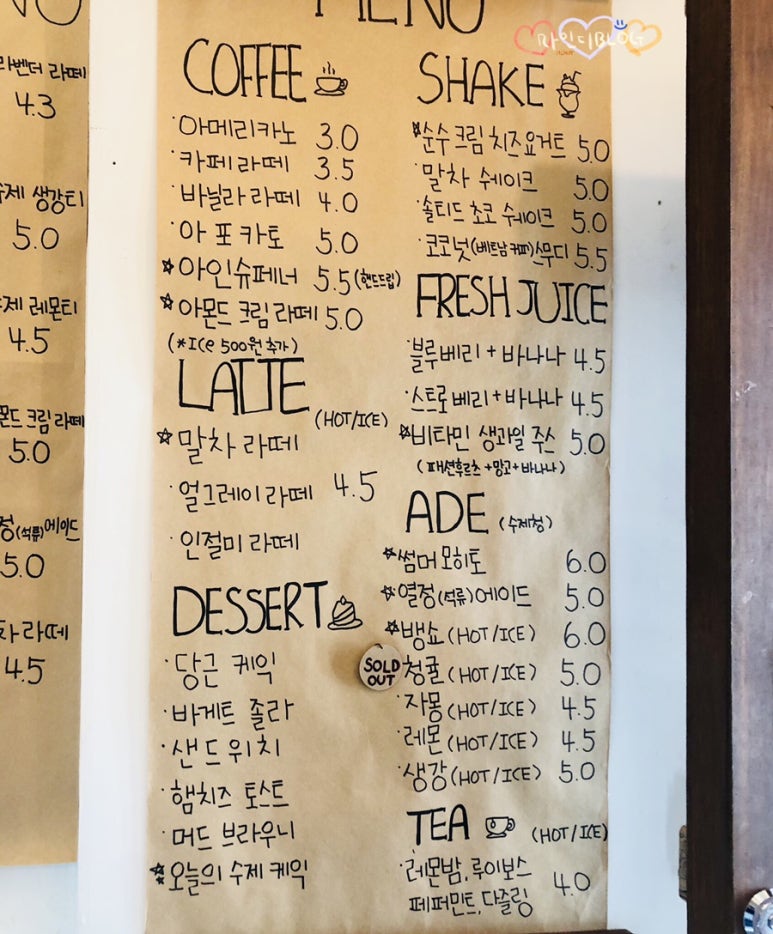 NU
라벤더 라떼
4.3
수제 생강티
5.0
수제 레몬티
4.5
아몬드 크림 라떼
5.0
열정(석류)에이드
5.0
말차 라떼
4.5
MENU
마인디BLOG
COFFEE
·아메리카노 3.0
·카페 라떼 3.5
·바닐라 라떼 4.0
·아포카토 5.0
☆아인슈페너 5.5 (핸드드립)
☆아몬드 크림 라떼 5.0
(*ICe 500원 추가)
LATTE
(HOT/ICE)
☆말차 라떼
·얼그레이 라떼 4.5
·인절미 라떼
DESSERT
·당근 케익
·바게트 졸라
·샌드위치
·햄치즈 토스트
·머드 브라우니
☆오늘의 수제 케익
SHAKE
☆순수 크림 치즈 요거트 5.0
·말차 쉐이크 5.0
·솔티드 초코 쉐이크 5.0
·코코넛(베트남 커피)스무디 5.5
FRESH JUICE
·블루베리+바나나 4.5
·스트로베리+바나나 4.5
☆비타민 생과일 주스 5.0
(패션후르츠+망고+바나나)
ADE (수제청)
☆썸머 모히토 6.0
☆열정(석류)에이드 5.0
☆뱅쇼(HOT/ICE) 6.0
SOLD OUT
·청귤(HOT/ICE) 5.0
·자몽(HOT/ICE) 4.5
·레몬(HOT/ICE) 4.5
·생강(HOT/ICE) 5.0
TEA (HOT/ICE)
·레몬밤, 루이보스
페퍼민트, 다즐링 4.0